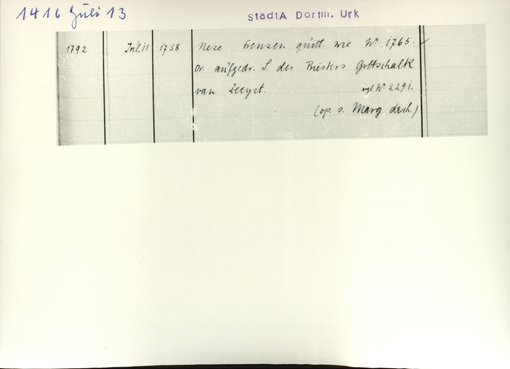 1416 Juli 13
StadtA Dortm. Urk
1792 Juli 1 1758 Nese Frensen quitt. wie No. 1763.
Or. aufgedr. S. des Priesters Gottschalk
van vgl No. 2291.
(op s. Marg. dach)